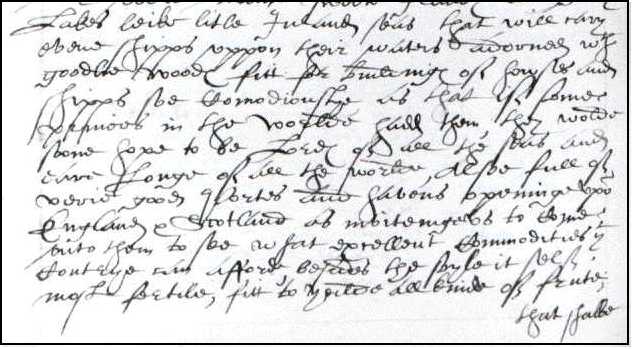 Lakes leike litle Inland seas that will cary
evene shipps uppon their waters adorned wth
goodlie woodes fitt for buildinge of howses and
shipps soe comodiouslye as that if some
princes in the worlde hadd them they wolde
sone hope to be Lords of all the seas and
eare longe of all the worlde, alsoe full of
verie good portes and havens openinge upo
England & Scotland as invitenge us to come
unto them to see what excellent commodities yt
Contrye can afford besides the soyle it selfe
most fertile, fitt to yeilde all kinde of frute,
that shalbe